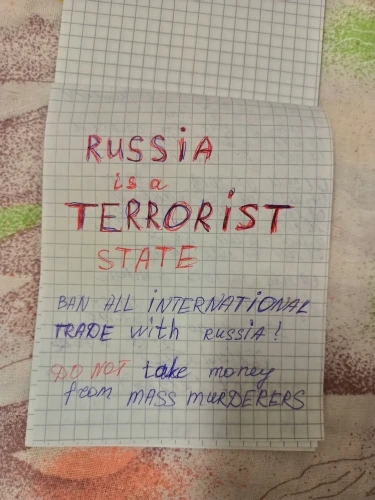 RUSSiA
is a
TERRORiST
STATE
BAN ALL iNTERNATiONAL
TRADE with RUSSiA!
DO NOT take money
from MASS MURDERERS